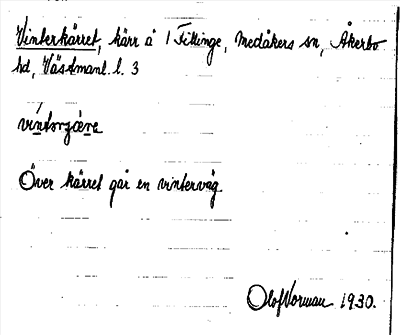 Vinterkärret, kärr å 1 Fittinge, Medåkers sn, Åkerbo
hd, Västmanl. l. 3
Över kärret går en vinterväg.
Olof Norman 1930.